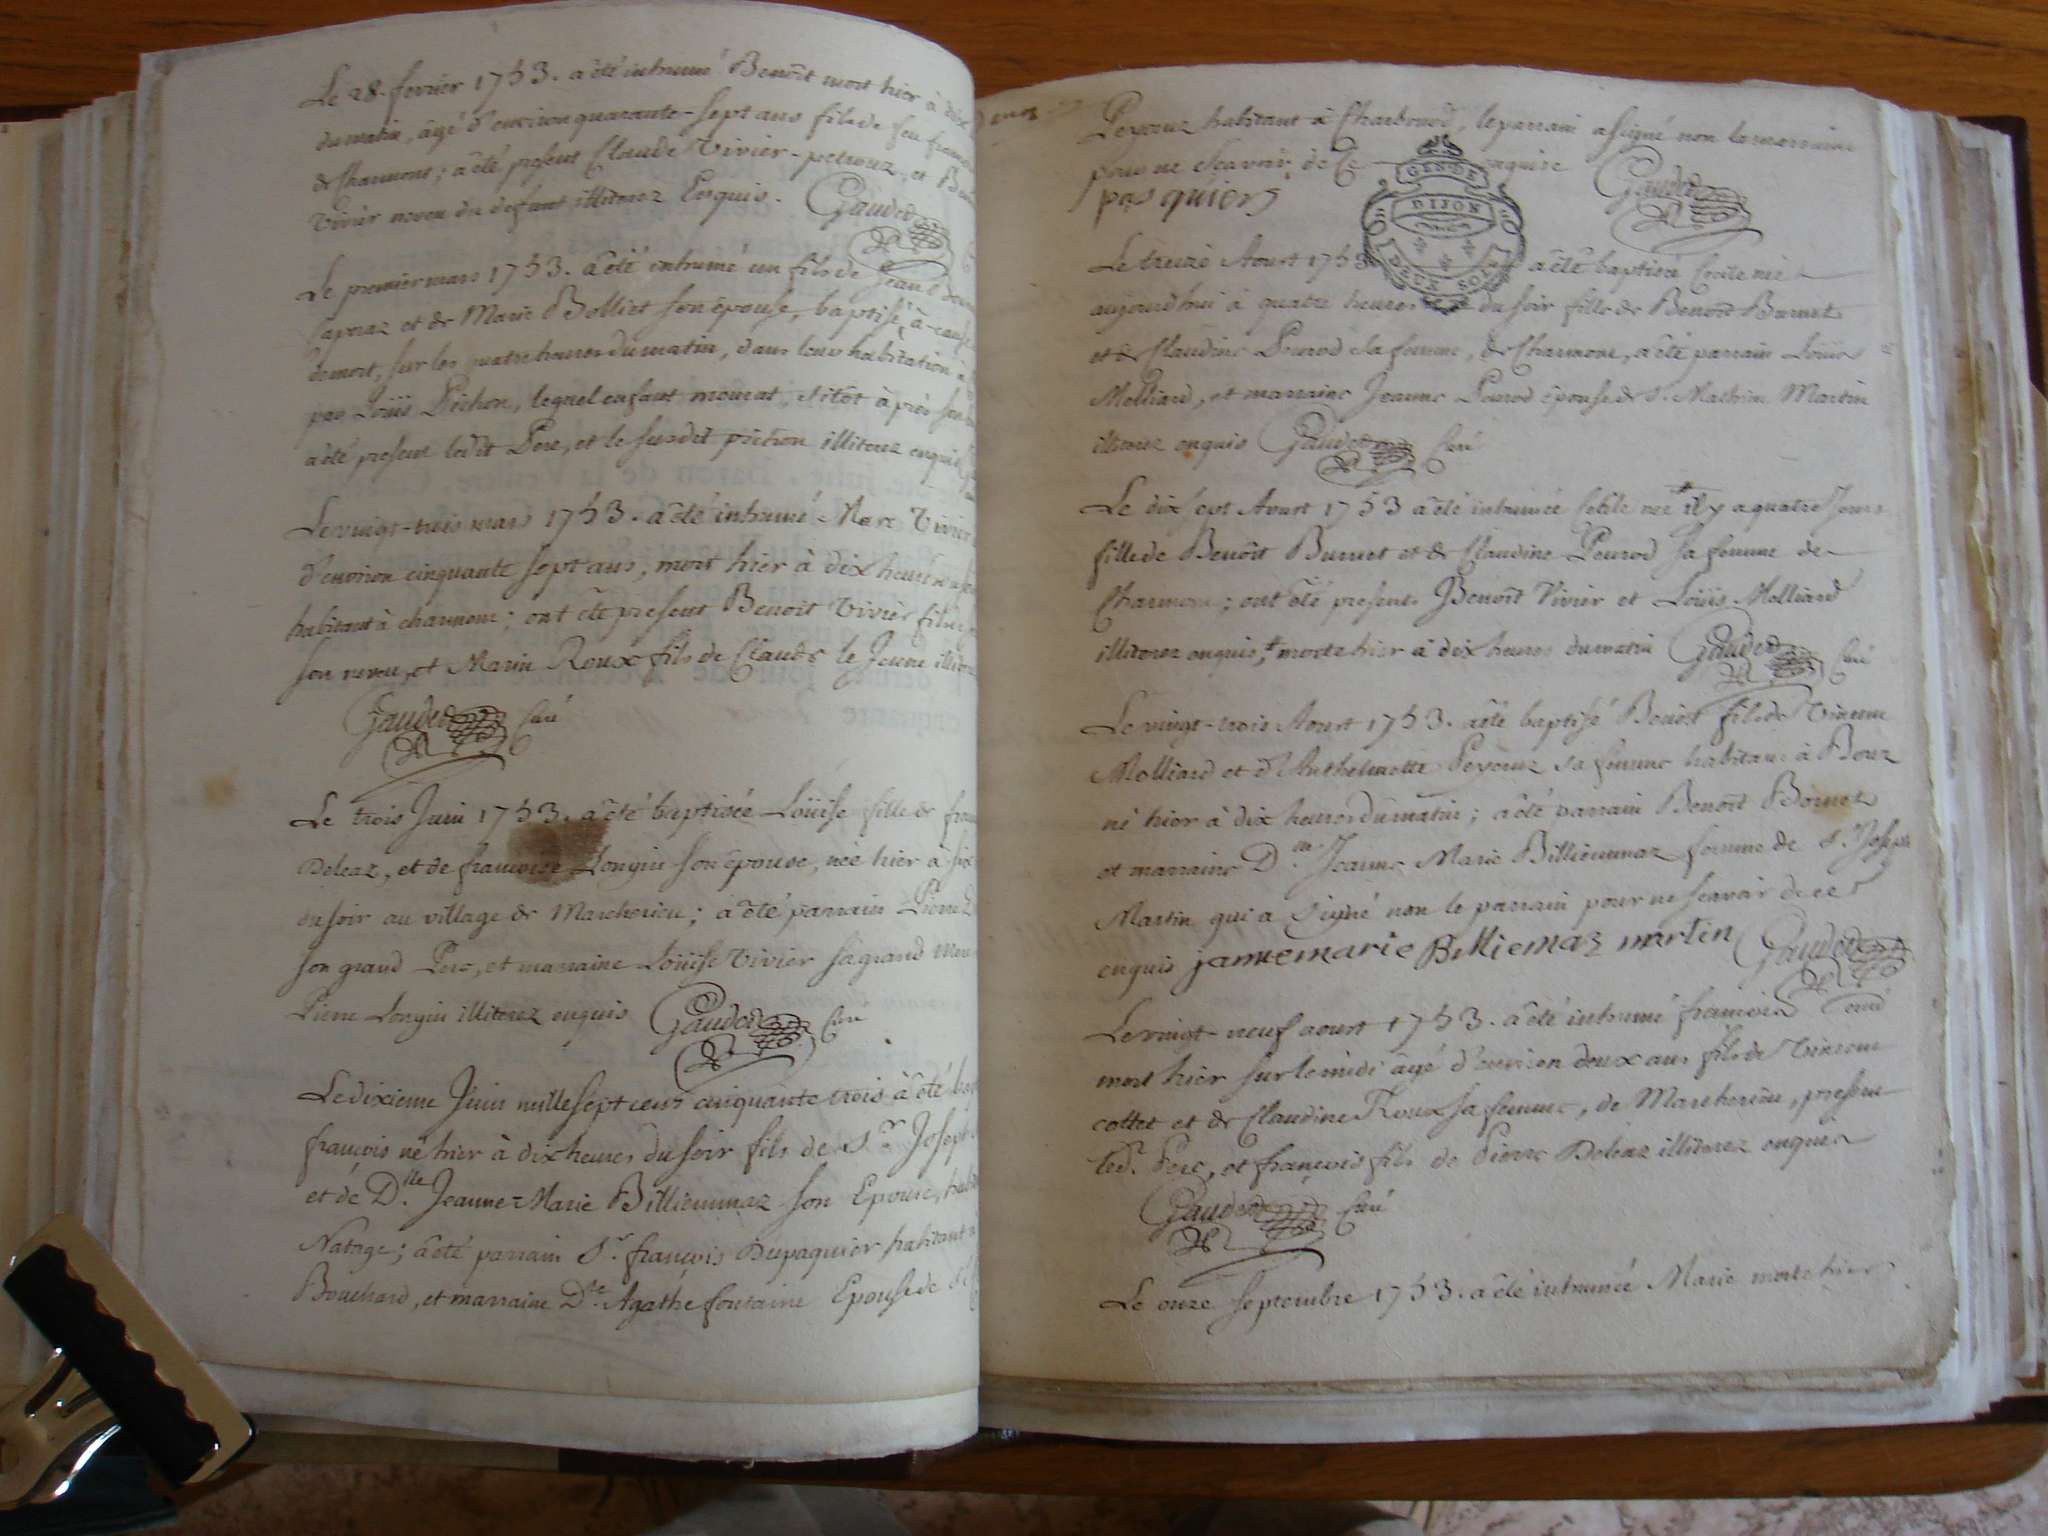 Le 28. fevrier 1753. a été inhumé Benoît mort hier à dix
du matin, âgé d'environ quarante-sept ans fils de feu
de Charmont; a été présent Claude Vivier-petrouz, et
Vivier neveu du defunt illiterez Enquis. Gaudet
Le premier mars 1753. a été inhumé un fils de Jean
et de Marie Bolliet son épouse, baptisé à cause
de mort, sur les quatre heures du matin, dans leur habitation
par Loüis Pichon, lequel enfant mourut, sitôt après son
a été present ledit Pere, et le susdit pichon illiterez enquis
Le vingt-trois mars 1753. a été inhumé Marc Vivier
d'environ cinquante sept ans, mort hier à dix heures
habitant à charmont; ont été present Benoit Vivier fils
son neveu, et Marin Roux fils de Claude le Jeune
Gaudet Curé
Le trois Juin 1753. a été baptisée Loüise fille de
Deleaz, et de francoise Longin son épouse, née hier à six
du soir au village de Marcherieu; a été parrain Pierre
son grand Pere, et marraine Loüise Vivier sa grand
Pierre Longin illiterez enquis Gaudet Curé
Le dixieme Juin mille sept cens cinquante trois a été
françois né hier à dix heures du soir fils de Sr. Joseph
et de Dlle. Jeanne-Marie Billiemmaz son Epouse,
Natage; a été parrain Sr. françois Dupaquier habitant
Bouchard, et marraine Dlle. Agathe fontaine Epouse de
Peyrouz habitant à Charbonod, le parrain a signé non la marraine
pour ne Scavoir, de Ce enquise Gaudet
pasquiers
GEN DE
DIJON
DEUX SOLS
Le treize Aoust 1753 a été baptisée Cecile née
aujourdhui à quatre heures du soir fille de Benoît Burnet
et de Claudine Peurod sa femme, de Charmont, a été parrain Loüis
Molliard, et marraine Jeanne Peurod épouse de S. Mathieu Martin
illiterez enquis Gaudet Curé
Le dix sept Aoust 1753 a été inhumée Cecile née il y a quatre Jours
fille de Benoît Burnet et de Claudine Peurod sa femme de
Charmont; ont été présents Benoît Vivier et Loüis Molliard
illiterez enquis, morte hier à dix heures du matin Gaudet Curé
Le vingt-trois Aoust 1753. a été baptisé Benoît fils de Vincent
Molliard et d'Anthelmette Peyrouz sa femme habitans à
né hier à dix heures du matin; a été parrain Benoît Bornet
et marraine Dlle. Jeanne Marie Billiemmaz femme de Sr. Joseph
Martin qui a Signé non le parrain pour ne Scavoir de ce
enquis jannemarie Billiemaz martin Gaudet
Curé
Le vingt-neuf aoust 1753. a été inhumé francois
mort hier sur le midi âgé d'environ deux ans fils de Vincent
cottet et de Claudine Roux sa femme, de Marcherieu, present
led. Pere, et francois fils de Pierre Deleaz illiterez enquis
Gaudet Curé
Le onze Septembre 1753. a été inhumée Marie morte hier